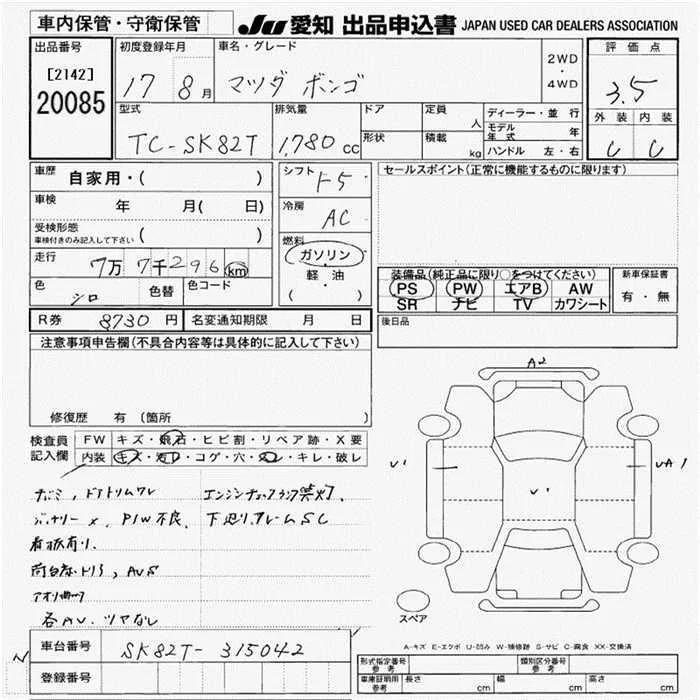 車内保管・守衛保管
JU 愛知 出品申込書 JAPAN USED CAR DEALERS ASSOCIATION
出品番号
[2142]
20085
初度登録年月
17 8月
車名・グレード
マツダ ボンゴ
2WD
・
4WD
評価点
3.5
外装 内装
C C
型式
TC-SK82T
排気量
1,780 cc
ドア
形状
定員
人
積載
kg
ディーラー・並行
モデル年式 年
ハンドル 左・右
車歴
自家用・( )
車検
年 月( 日)
受検形態
車検付きのみ記入して下さい ( )
走行
7万 7千296 km
色
シロ
色替
色コード
シフト
F5
冷房
AC
燃料
ガソリン
軽・油
( ・ )
セールスポイント(正常に機能するものに限ります)
装備品(純正品に限り○をつけてください)
PS PW エアB AW
SR ナビ TV カワシート
新車保証書
有・無
後日品
R券 8730円
名変通知期限 月 日
注意事項申告欄(不具合内容等は具体的に記入して下さい)
修復歴 有(箇所
検査員
記入欄
FW キズ・飛石・ヒビ割・リペア跡・X要
内装 キズ・汚レ・コゲ・穴・スレ・キレ・破レ
ドアトリムワレ
エンジンチェックランプ点灯、
バッテリー×、P/W不良、
下廻り、フレームSC
看板有り、
各AU、ツヤなし
A2
U1
U1
UA1
スペア
A-キズ E-エクボ U-凹み W-補修跡 S-サビ C-腐食 XX-交換済
車台番号
SK82T-315042
登録番号
形式指定番号
参考
類別区分番号
参考
車庫証明用
参考
長さ cm
幅 cm
高さ cm